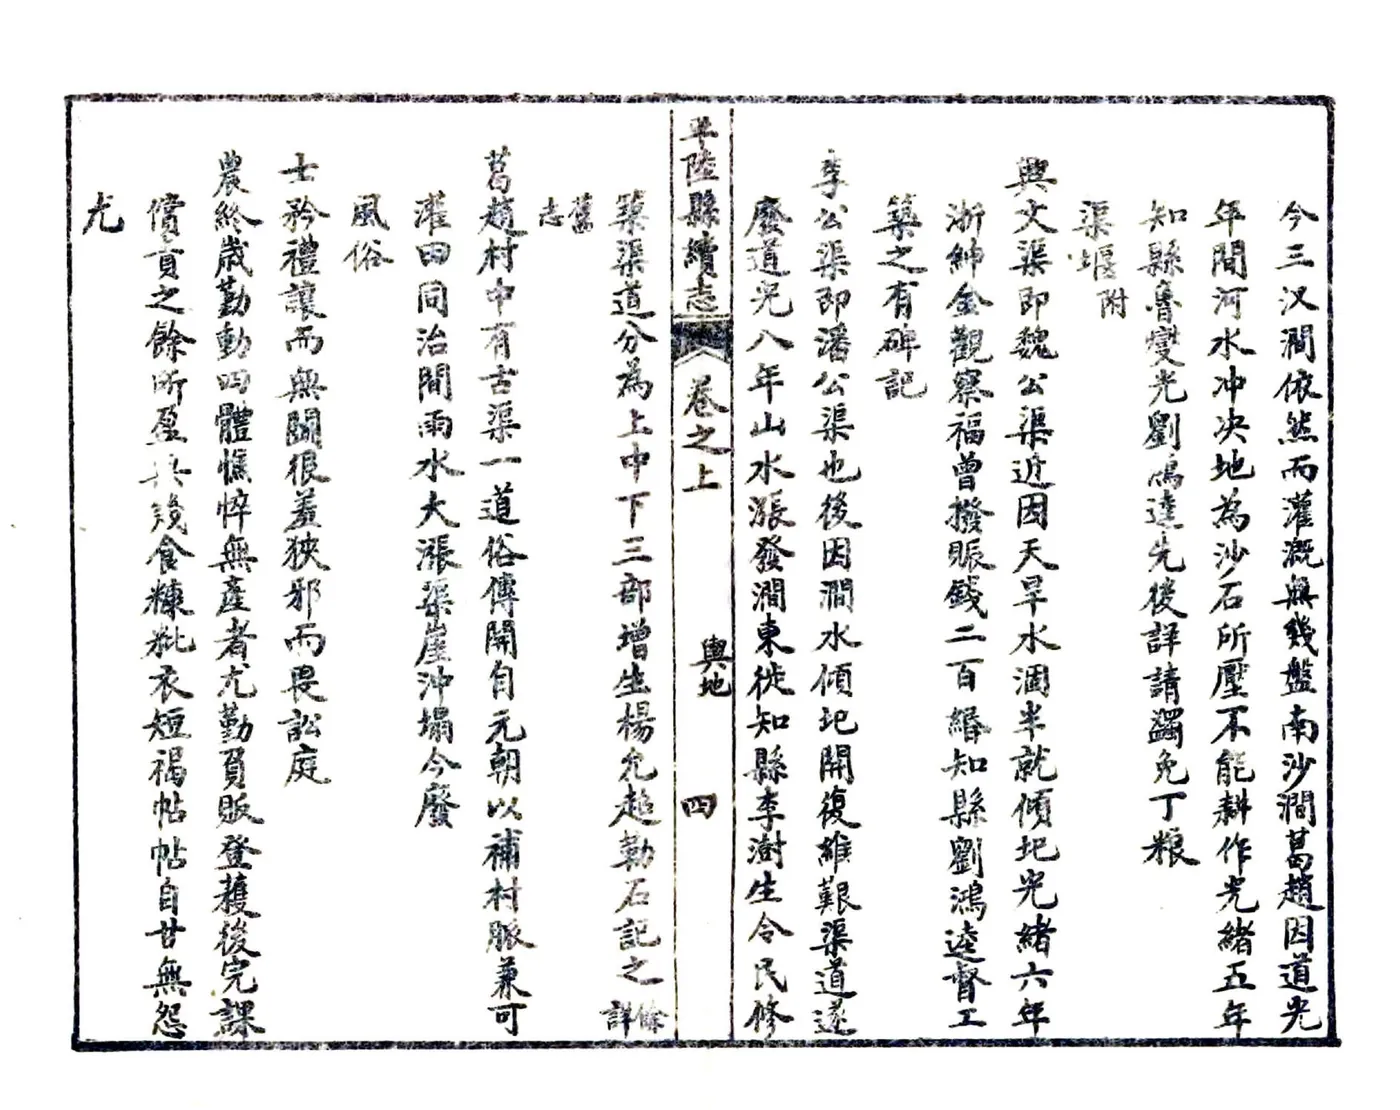 今三汊澗依然而灌溉無幾盤南沙澗葛趙因道光
年間河水冲决地為沙石所壓不能耕作光緒五年
知縣魯燮光劉鴻逵先後詳請蠲免丁粮
渠堰附
興文渠即魏公渠近因天旱水涸半就傾圮光緒六年
浙紳金觀察福曾撥賑錢二百緡知縣劉鴻逵督工
築之有碑記
李公渠即潘公渠也後因澗水傾圮開復維艱渠道遂
廢道光八年山水漲發澗東徙知縣李澍生令民修
平陸縣續志 卷之上 輿地 四
築渠道分為上中下三部增生楊允趨勒石記之餘詳
舊志
葛趙村中有古渠一道俗傳開自元朝以補村脈兼可
灌田同治間雨水大漲渠崖沖塌今廢
風俗
士矜禮讓而無鬭很羞狹邪而畏訟庭
農終歲勤動四體憔悴無產者尤勤貿販登穫後完課
償責之餘所盈無幾食糠粃衣短褐帖帖自甘無怨
尤